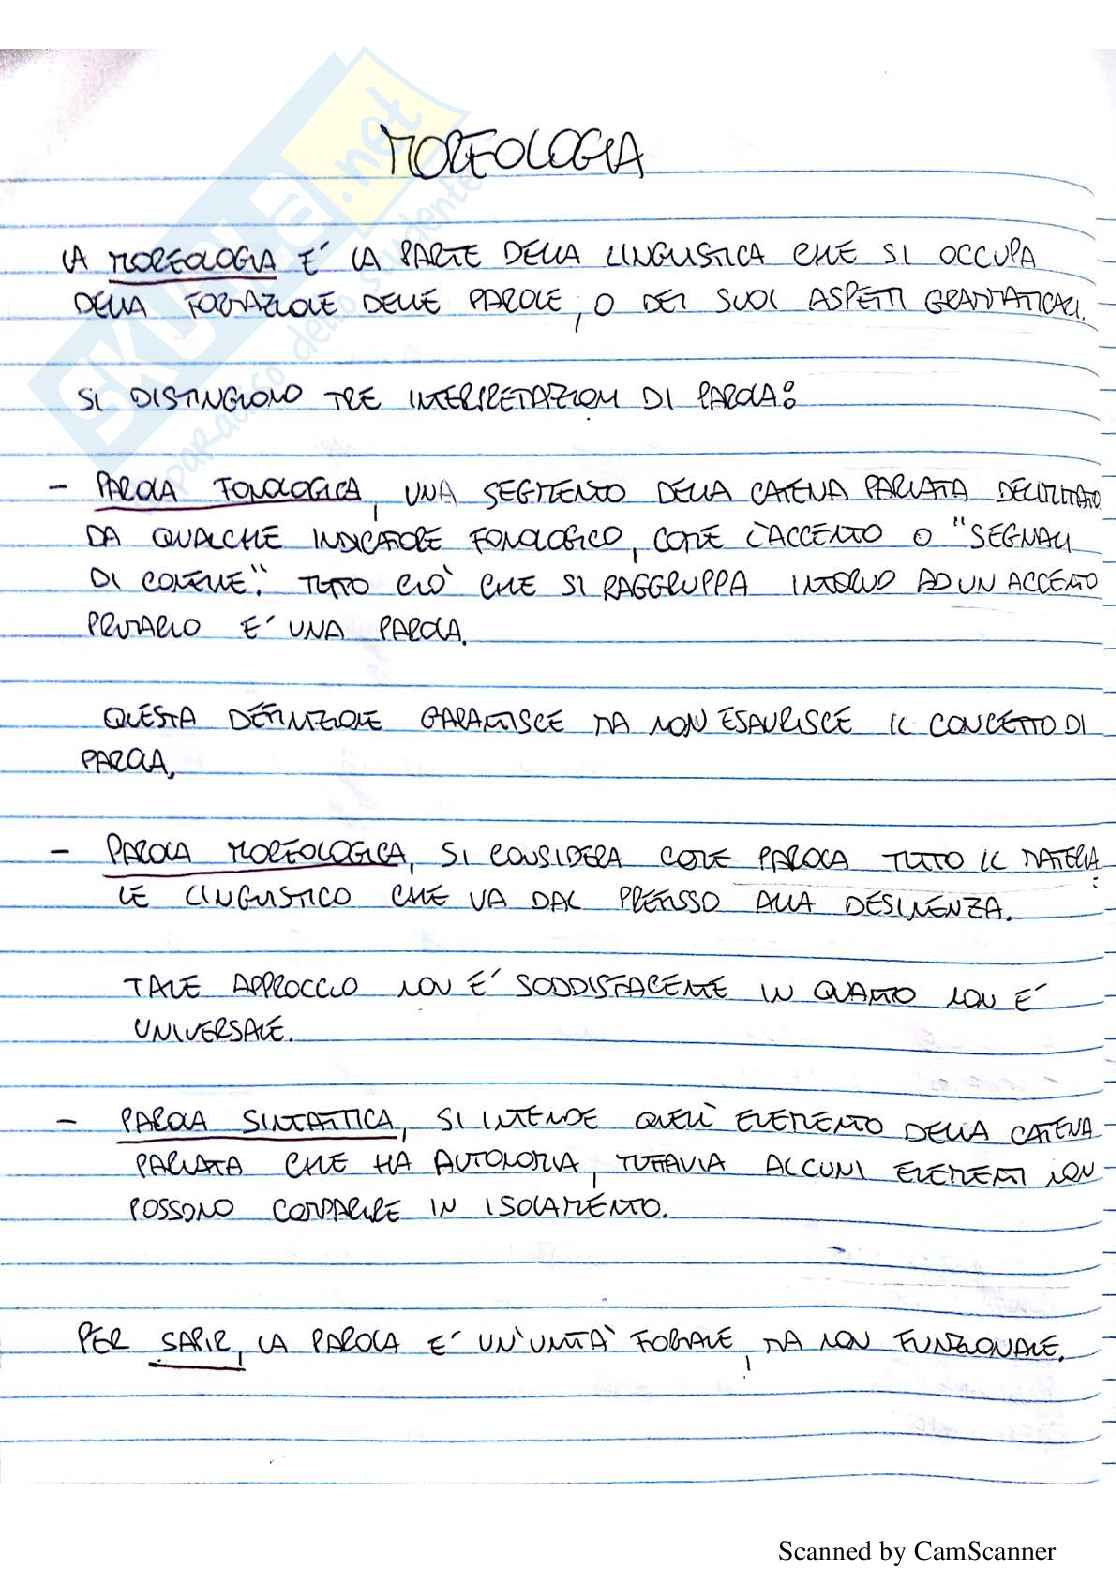 MORFOLOGIA
LA MORFOLOGIA E' LA PARTE DELLA LINGUISTICA CHE SI OCCUPA
DELLA FORMAZIONE DELLE PAROLE, O DEI SUOI ASPETTI GRAMMATICALI.
SI DISTINGUONO TRE INTERPRETAZIONI DI PAROLA:
- PAROLA FONOLOGICA, UNA SEGMENTO DELLA CATENA PARLATA DELIMITATO
DA QUALCHE INDICATORE FONOLOGICO, COME L'ACCENTO O "SEGNALI
DI CONFINE". TUTTO CIÒ CHE SI RAGGRUPPA INTORNO AD UN ACCENTO
PRIMARIO E' UNA PAROLA.
QUESTA DEFINIZIONE GARANTISCE MA NON ESAURISCE IL CONCETTO DI
PAROLA.
- PAROLA MORFOLOGICA, SI CONSIDERA COME PAROLA TUTTO IL MATERIA
LE LINGUISTICO CHE VA DAL PREFISSO ALLA DESINENZA.
TALE APPROCCIO NON E' SODDISFACENTE IN QUANTO NON E'
UNIVERSALE.
- PAROLA SINTATTICA, SI INTENDE QUELL' ELEMENTO DELLA CATENA
PARLATA CHE HA AUTONOMIA, TUTTAVIA ALCUNI ELEMENTI NON
POSSONO COMPARIRE IN ISOLAMENTO.
PER SAPIR, LA PAROLA E' UN'UNITA' FORMALE, MA NON FUNZIONALE.
SKUOLA.net
paradiso dello studente
Scanned by CamScanner